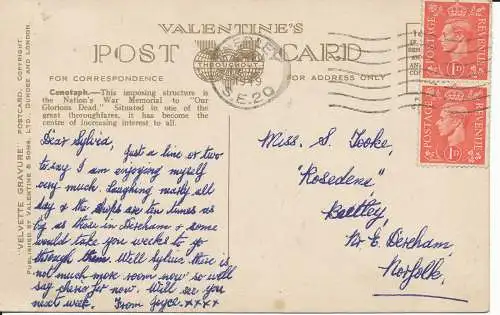 VALENTINE'S
POST CARD
THROUGHOUT
FOR CORRESPONDENCE
FOR ADDRESS ONLY
S.E.20
"VELVETTE GRAVURE" POSTCARD. COPYRIGHT.
PUBLISHED BY VALENTINE & SONS, LTD., DUNDEE AND LONDON.
Cenotaph.—This imposing structure is
the Nation's War Memorial to "Our
Glorious Dead." Situated in one of the
great thoroughfares, it has become the
centre of increasing interest to all.
Dear Sylvia,
Just a line or two
to say I am enjoying myself
very much. Laughing mostly all
day & the shops are ten times as
big as those in Dereham & some
would take you weeks to go
through them. Well Sylvia there is
not much more room now so will
say cheerio for now. Will see you
next week. From Joyce. xxxx
Miss. S. Tooke,
"Rosedene",
Beetley
Nr E. Dereham,
Norfolk.
POSTAGE REVENUE
1D
POSTAGE REVENUE
1D